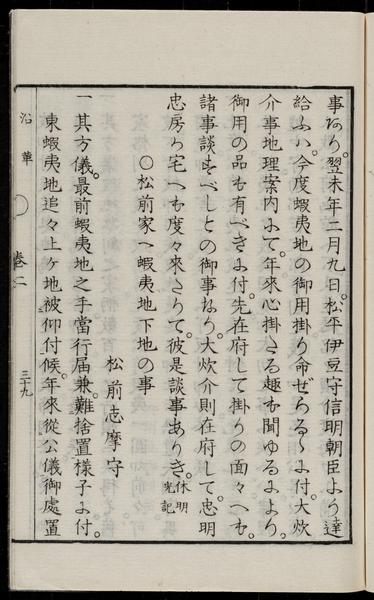 事なり。翌未年二月九日。松平伊豆守信明朝臣より達
給ふハ。今度蝦夷地の御用掛り命ぜらるゝに付。大炊
介事地理案内にて。年來心掛さる趣も聞ゆるにより。
御用の品も有べきに付。先在府して掛りの面々へも。
諸事談ずべしとの御事なり。大炊介則在府して。忠明
忠房の宅へも度々來さりて。彼是談事ありき。休明光記
〇松前家へ蝦夷地下地の事
松前志摩守
一其方儀。最前蝦夷地之手當行届兼。難捨置樣子に付。
東蝦夷地追々上ヶ地被仰付候。年來從公儀御處置
沿革
卷二
三十九